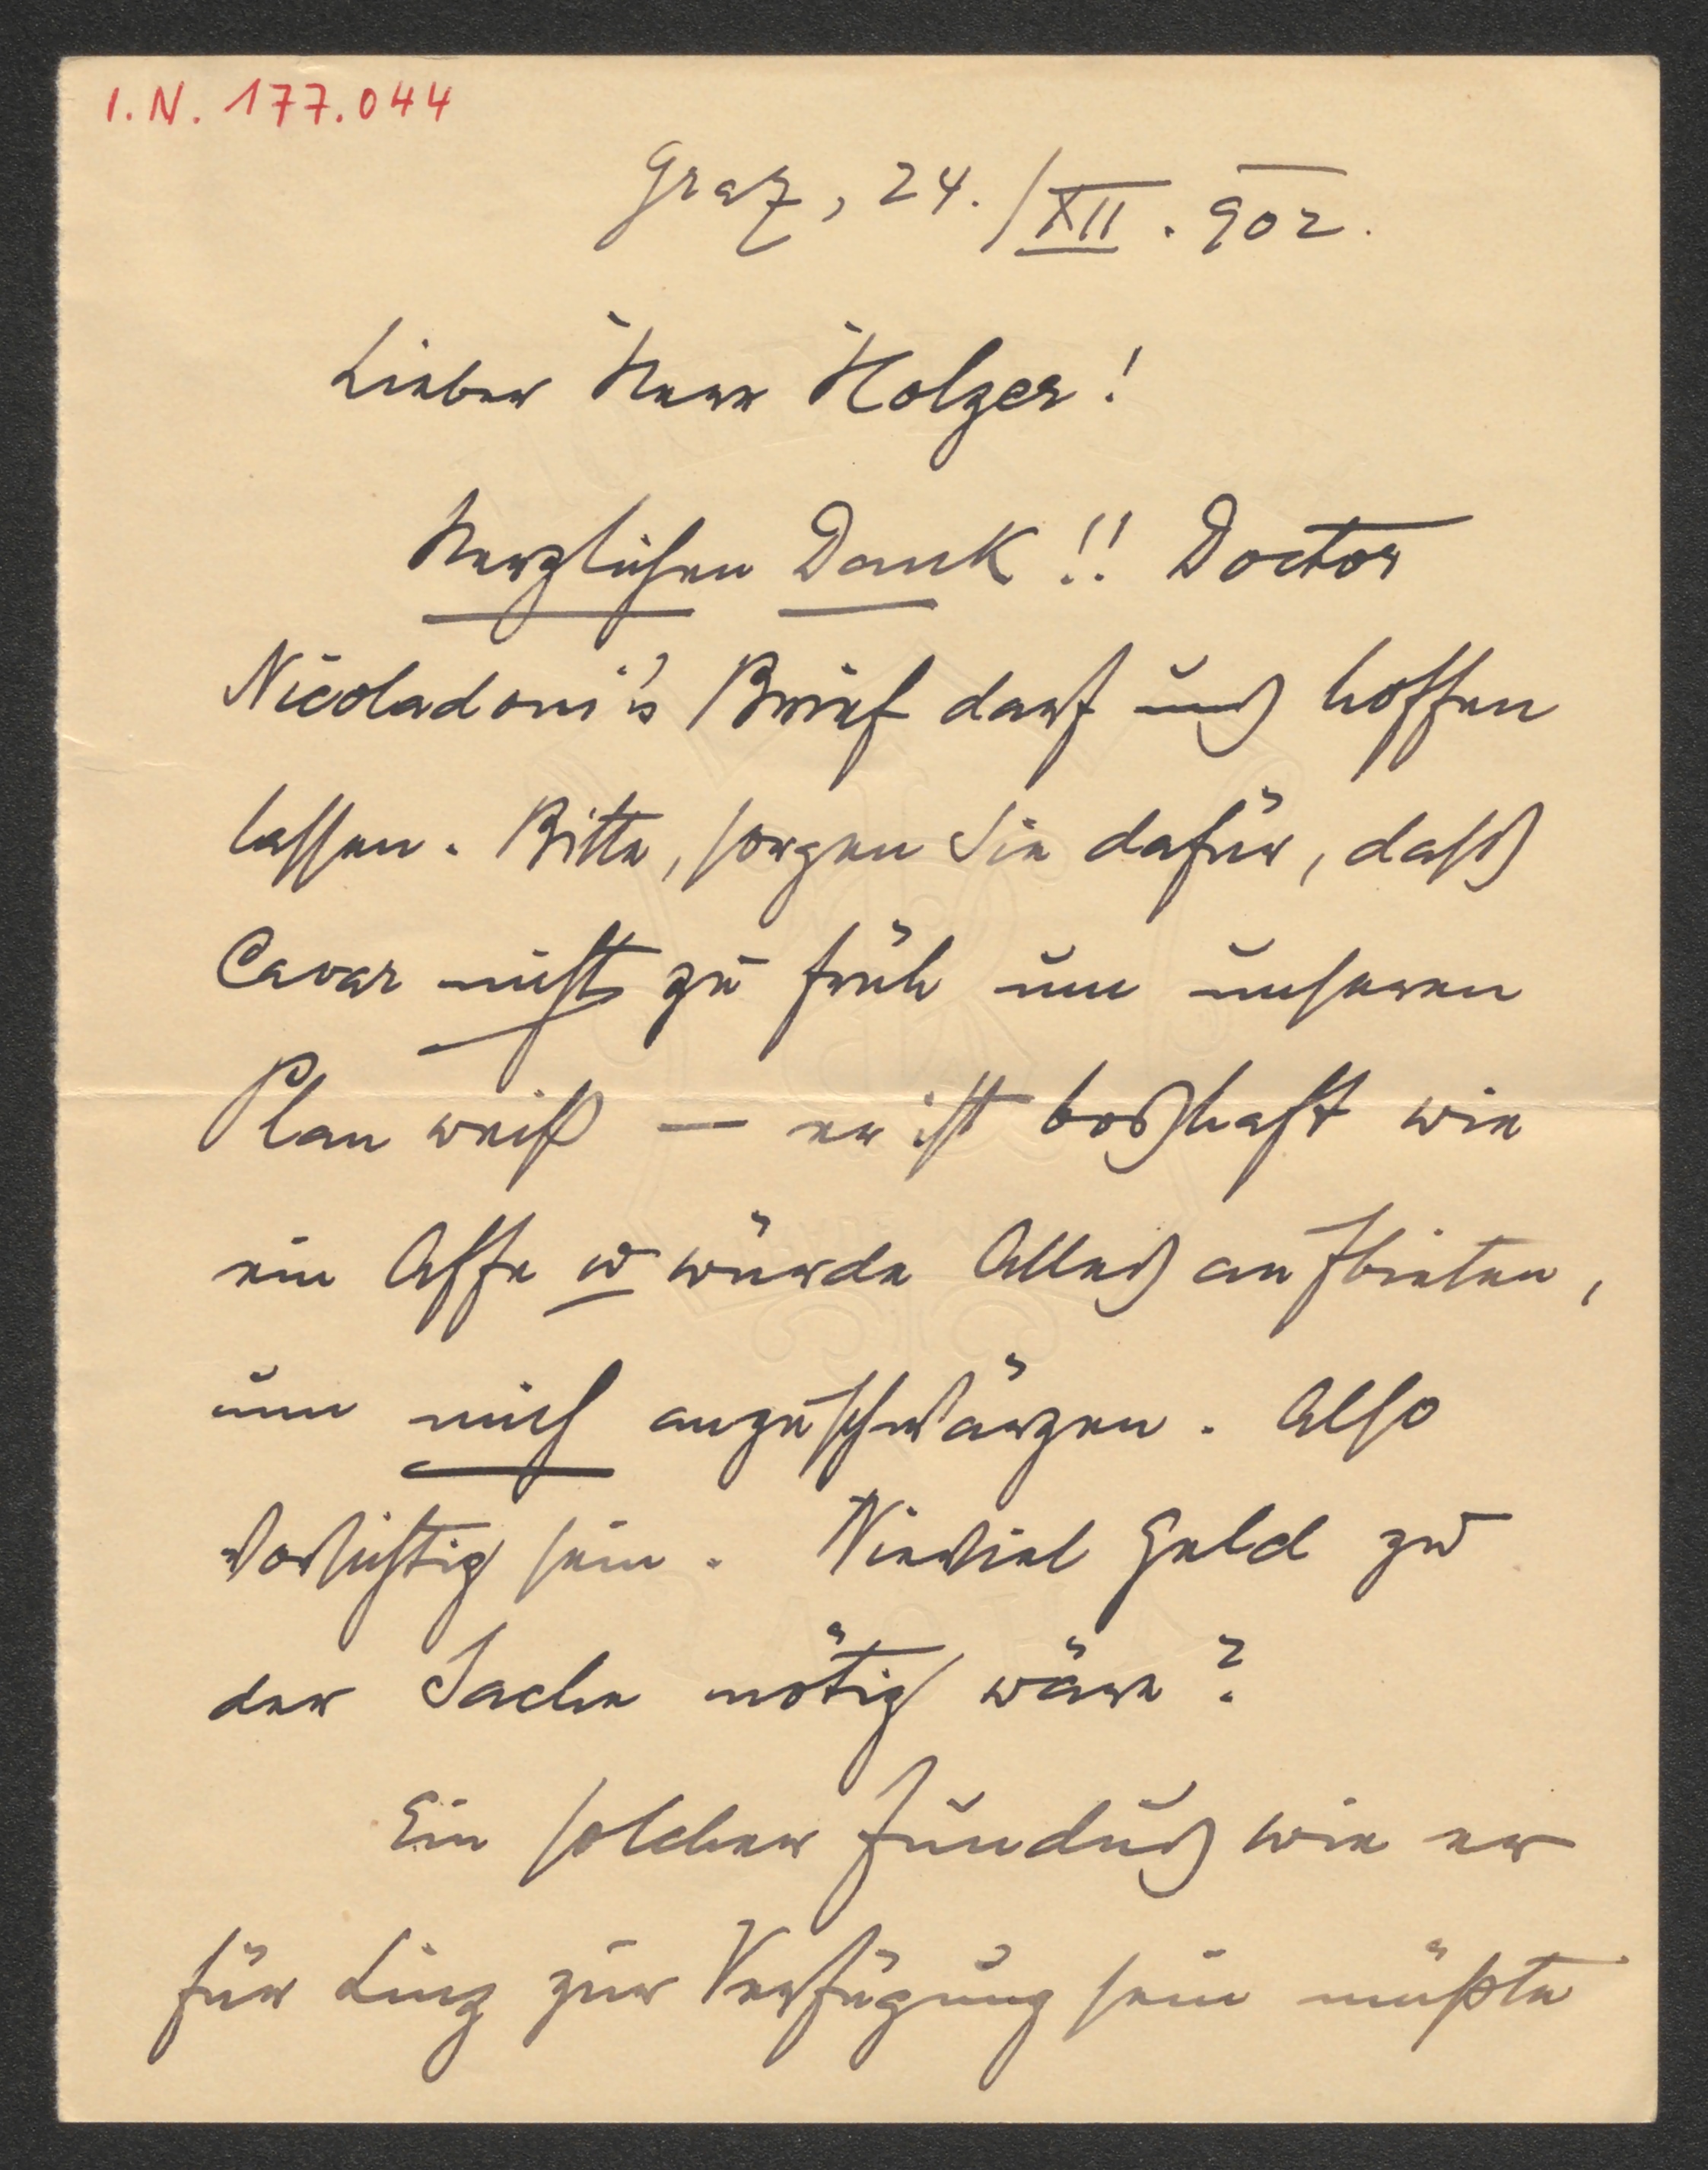 I.N. 177.044
Graz, 24./XII. 902.
Lieber Herr Holzer!
Herzlichen Dank!! Doctor
Nicoladoni's Brief darf uns hoffen
lassen. Bitte, sorgen Sie dafür, dass
Cavar nicht zu früh um unseren
Plan weiß — er ist boshaft wie
ein Affe u würde Alles aufbieten,
um mich anzuschwärzen. Also
vorsichtig sein. Wieviel Geld zu
der Sache nötig wäre?
Ein solcher Fundus wie er
für Linz zur Verfügung sein müßte